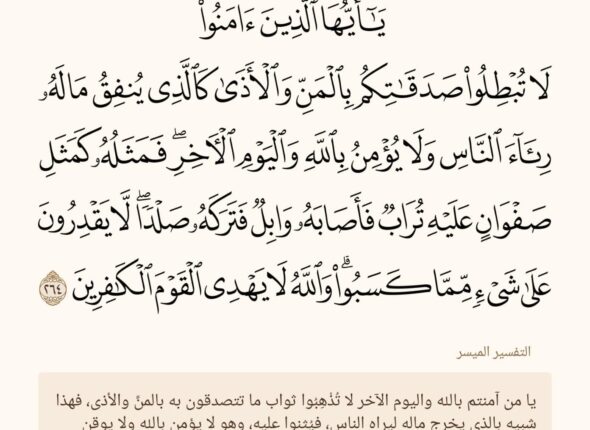 يَـٰٓأَيُّهَا ٱلَّذِينَ ءَامَنُوا۟
لَا تُبْطِلُوا۟ صَدَقَـٰتِكُم بِٱلْمَنِّ وَٱلْأَذَىٰ كَٱلَّذِى يُنفِقُ مَالَهُۥ
رِئَآءَ ٱلنَّاسِ وَلَا يُؤْمِنُ بِٱللَّهِ وَٱلْيَوْمِ ٱلْـَٔاخِرِ ۖ فَمَثَلُهُۥ كَمَثَلِ
صَفْوَانٍ عَلَيْهِ تُرَابٌ فَأَصَابَهُۥ وَابِلٌ فَتَرَكَهُۥ صَلْدًا ۖ لَّا يَقْدِرُونَ
عَلَىٰ شَىْءٍ مِّمَّا كَسَبُوا۟ ۗ وَٱللَّهُ لَا يَهْدِى ٱلْقَوْمَ ٱلْكَـٰفِرِينَ ٢٦٤
التفسير الميسر
يا من آمنتم بالله واليوم الآخر لا تُذْهِبُوا ثواب ما تتصدقون به بالمنِّ والأذى، فهذا
شبيه بالذي يخرج ماله ليراه الناس، فيُثنوا عليه، وهو لا يؤمن بالله ولا يوقن